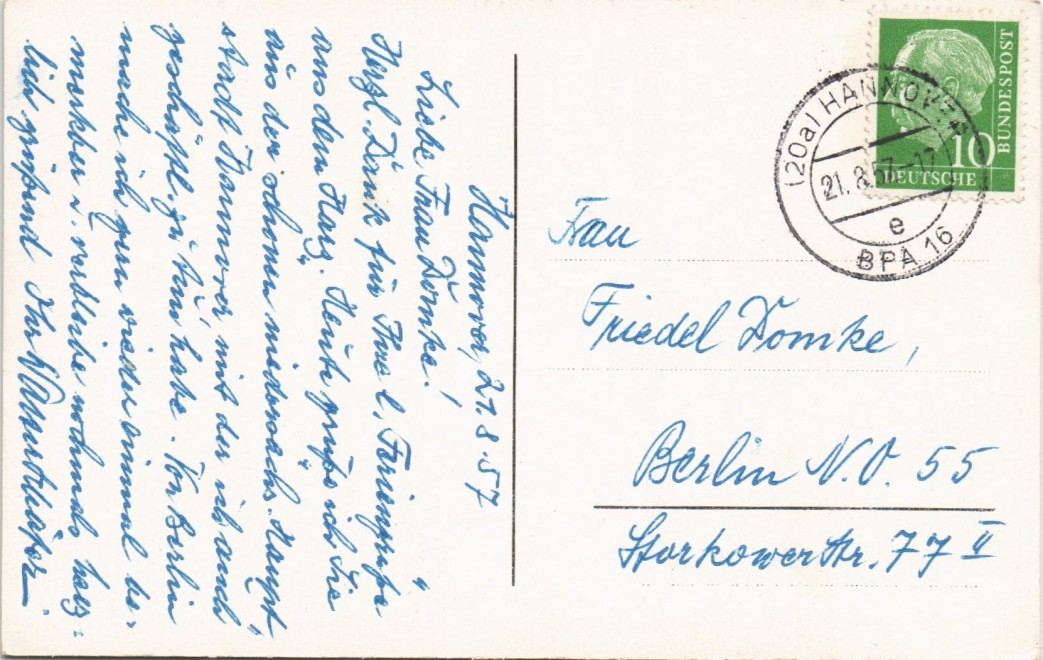 Hannover, 21.8.57
Liebe Frau Domke!
Herzl. Dank für Ihre l. Feriengrüße
aus dem Harz. Heute grüße ich Sie
aus der schönen niedersächs. Haupt-
stadt Hannover mit der ich auch
geschäftl. zu tun habe. Vor Berlin
mache ich gern wieder einmal be-
merkbar u. verbleibe nochmals herz-
lich grüßend Ihr
Frau
Friedel Domke,
Berlin N.O. 55
Storkower Str. 77 II
(20a) HANNOVER
21.8.57-17
e
BPA 16
10
DEUTSCHE
BUNDESPOST